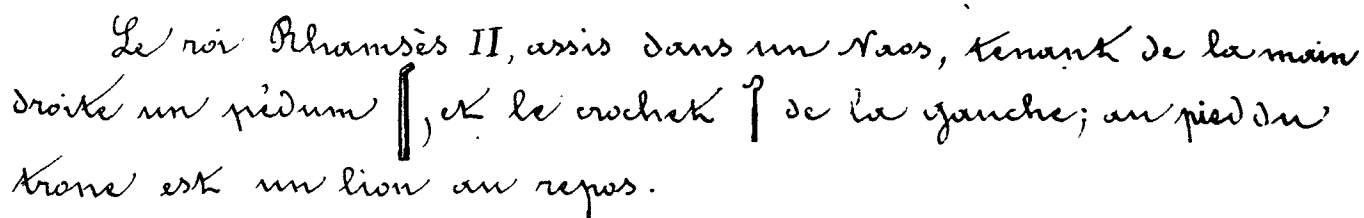 Le roi Rhamsès II, assis dans un Naos, tenant de la main
droite un pédum , et le crochet de la gauche; au pied du
trone est un lion au repos.